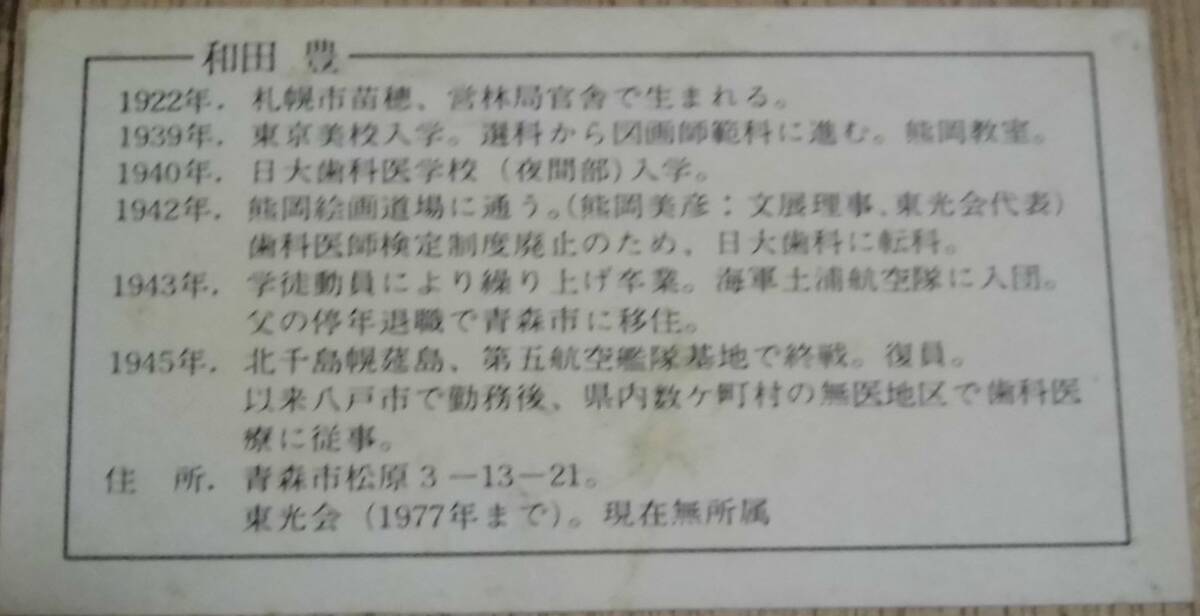 和田 豊
1922年. 札幌市苗穂、営林局官舎で生まれる。
1939年. 東京美校入学。選科から図画師範科に進む。熊岡教室。
1940年. 日大歯科医学校 (夜間部)入学。
1942年. 熊岡絵画道場に通う。(熊岡美彦：文展理事、東光会代表)
歯科医師検定制度廃止のため、日大歯科に転科。
1943年. 学徒動員により繰り上げ卒業。海軍土浦航空隊に入団。
父の停年退職で青森市に移住。
1945年. 北千島幌莚島、第五航空艦隊基地で終戦。復員。
以来八戸市で勤務後、県内数ケ町村の無医地区で歯科医
療に従事。
住　所. 青森市松原3－13－21。
東光会 (1977年まで)。現在無所属